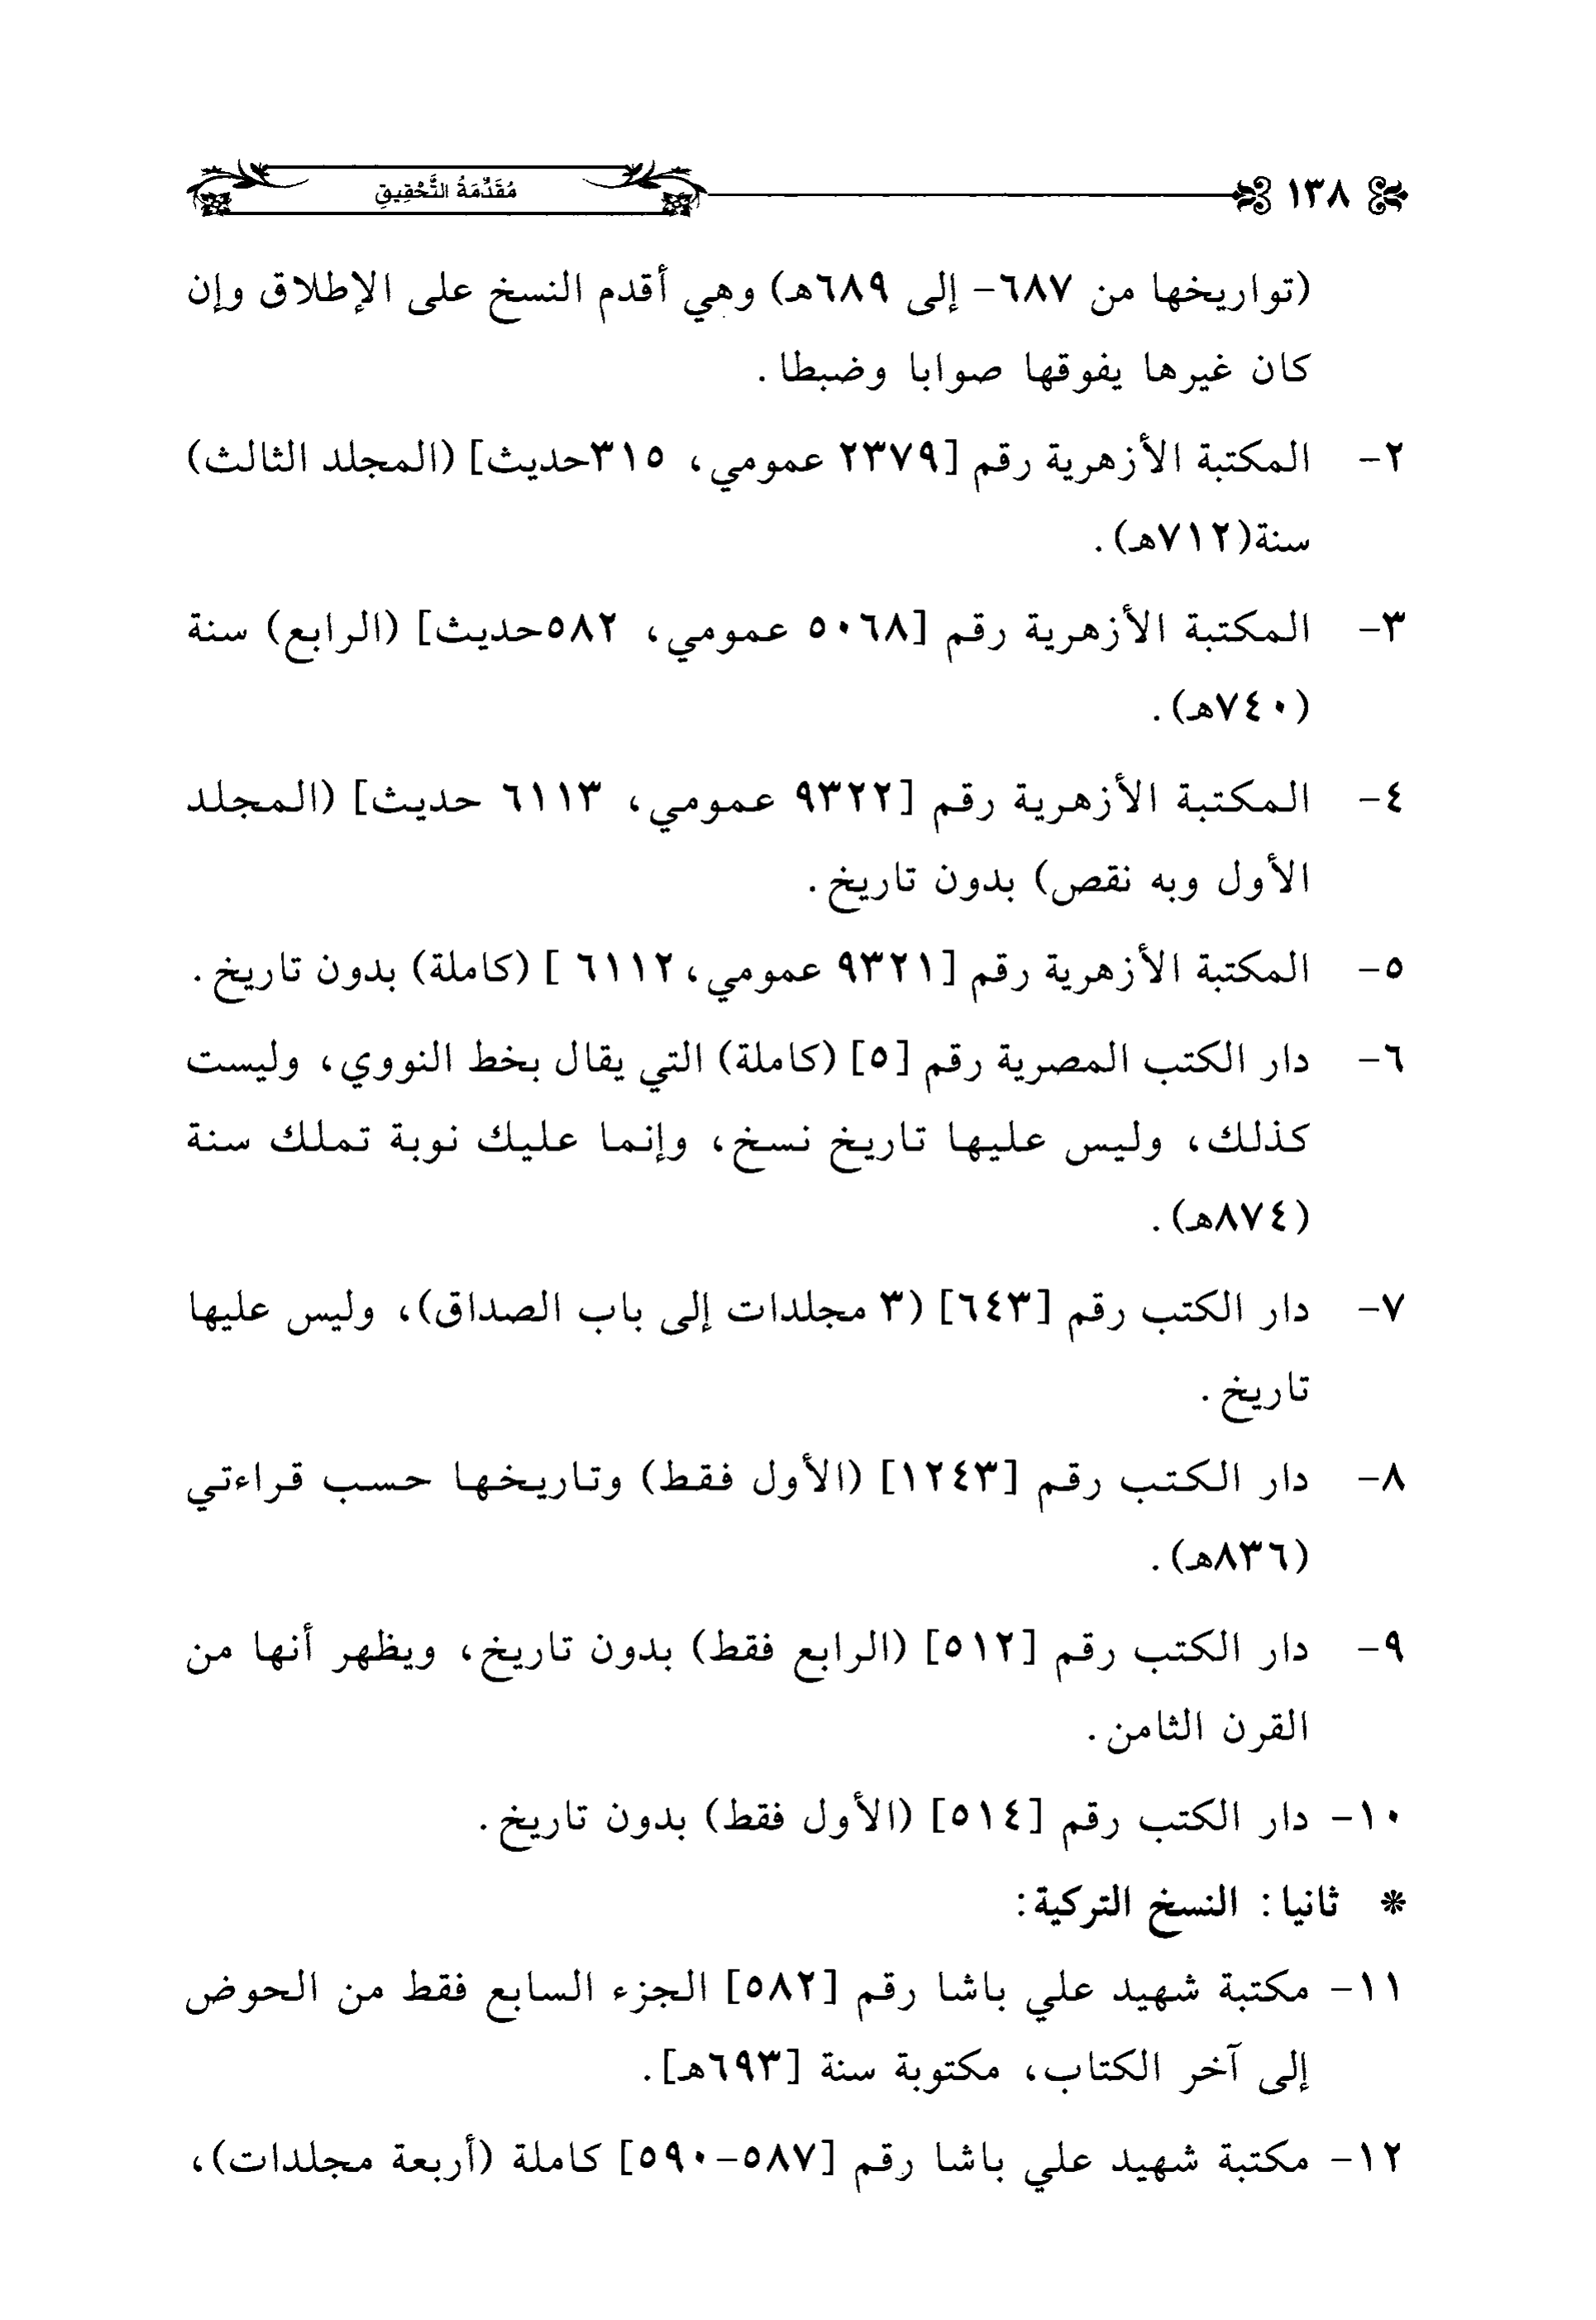 ١٣٨ مُقَدِّمَةُ التَّحْقِيقِ
(تواريخها من ٦٨٧- إلى ٦٨٩هـ) وهي أقدم النسخ على الإطلاق وإن
كان غيرها يفوقها صوابا وضبطا.
٢- المكتبة الأزهرية رقم [٢٣٧٩ عمومي، ٣١٥حديث] (المجلد الثالث)
سنة(٧١٢هـ).
٣- المكتبة الأزهرية رقم [٥٠٦٨ عمومي، ٥٨٢حديث] (الرابع) سنة
(٧٤٠هـ).
٤- المكتبة الأزهرية رقم [٩٣٢٢ عمومي، ٦١١٣ حديث] (المجلد
الأول وبه نقص) بدون تاريخ.
٥- المكتبة الأزهرية رقم [٩٣٢١ عمومي،٦١١٢ ] (كاملة) بدون تاريخ.
٦- دار الكتب المصرية رقم [٥] (كاملة) التي يقال بخط النووي، وليست
كذلك، وليس عليها تاريخ نسخ، وإنما عليك نوبة تملك سنة
(٨٧٤هـ).
٧- دار الكتب رقم [٦٤٣] (٣ مجلدات إلى باب الصداق)، وليس عليها
تاريخ.
٨- دار الكتب رقم [١٢٤٣] (الأول فقط) وتاريخها حسب قراءتي
(٨٣٦هـ).
٩- دار الكتب رقم [٥١٢] (الرابع فقط) بدون تاريخ، ويظهر أنها من
القرن الثامن.
١٠- دار الكتب رقم [٥١٤] (الأول فقط) بدون تاريخ.
* ثانيا: النسخ التركية:
١١- مكتبة شهيد علي باشا رقم [٥٨٢] الجزء السابع فقط من الحوض
إلى آخر الكتاب، مكتوبة سنة [٦٩٣هـ].
١٢- مكتبة شهيد علي باشا رقم [٥٨٧-٥٩٠] كاملة (أربعة مجلدات)،